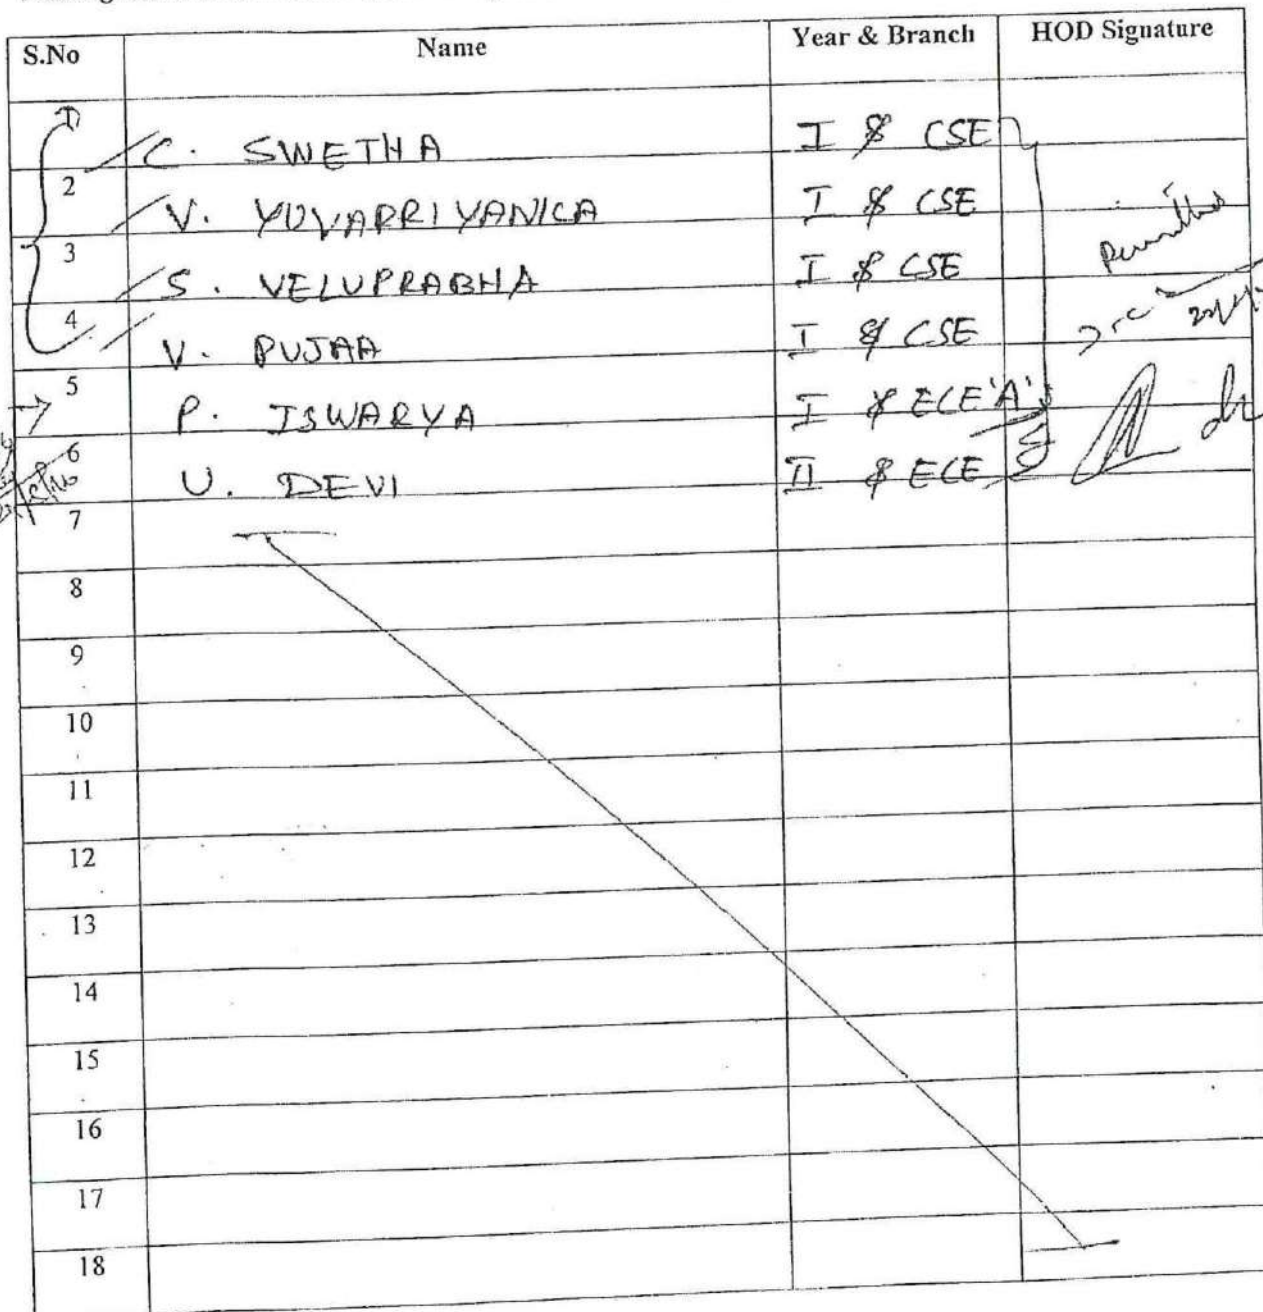 S.No Name Year & Branch HOD Signature
1 C. SWETHA I & CSE
2 V. YUVAPRIYANKA I & CSE
3 S. VELUPRABHA I & CSE
4 V. PUJAA I & CSE
5 P. ISWARYA I & ECE 'A'
6 U. DEVI II & ECE
7
8
9
10
11
12
13
14
15
16
17
18